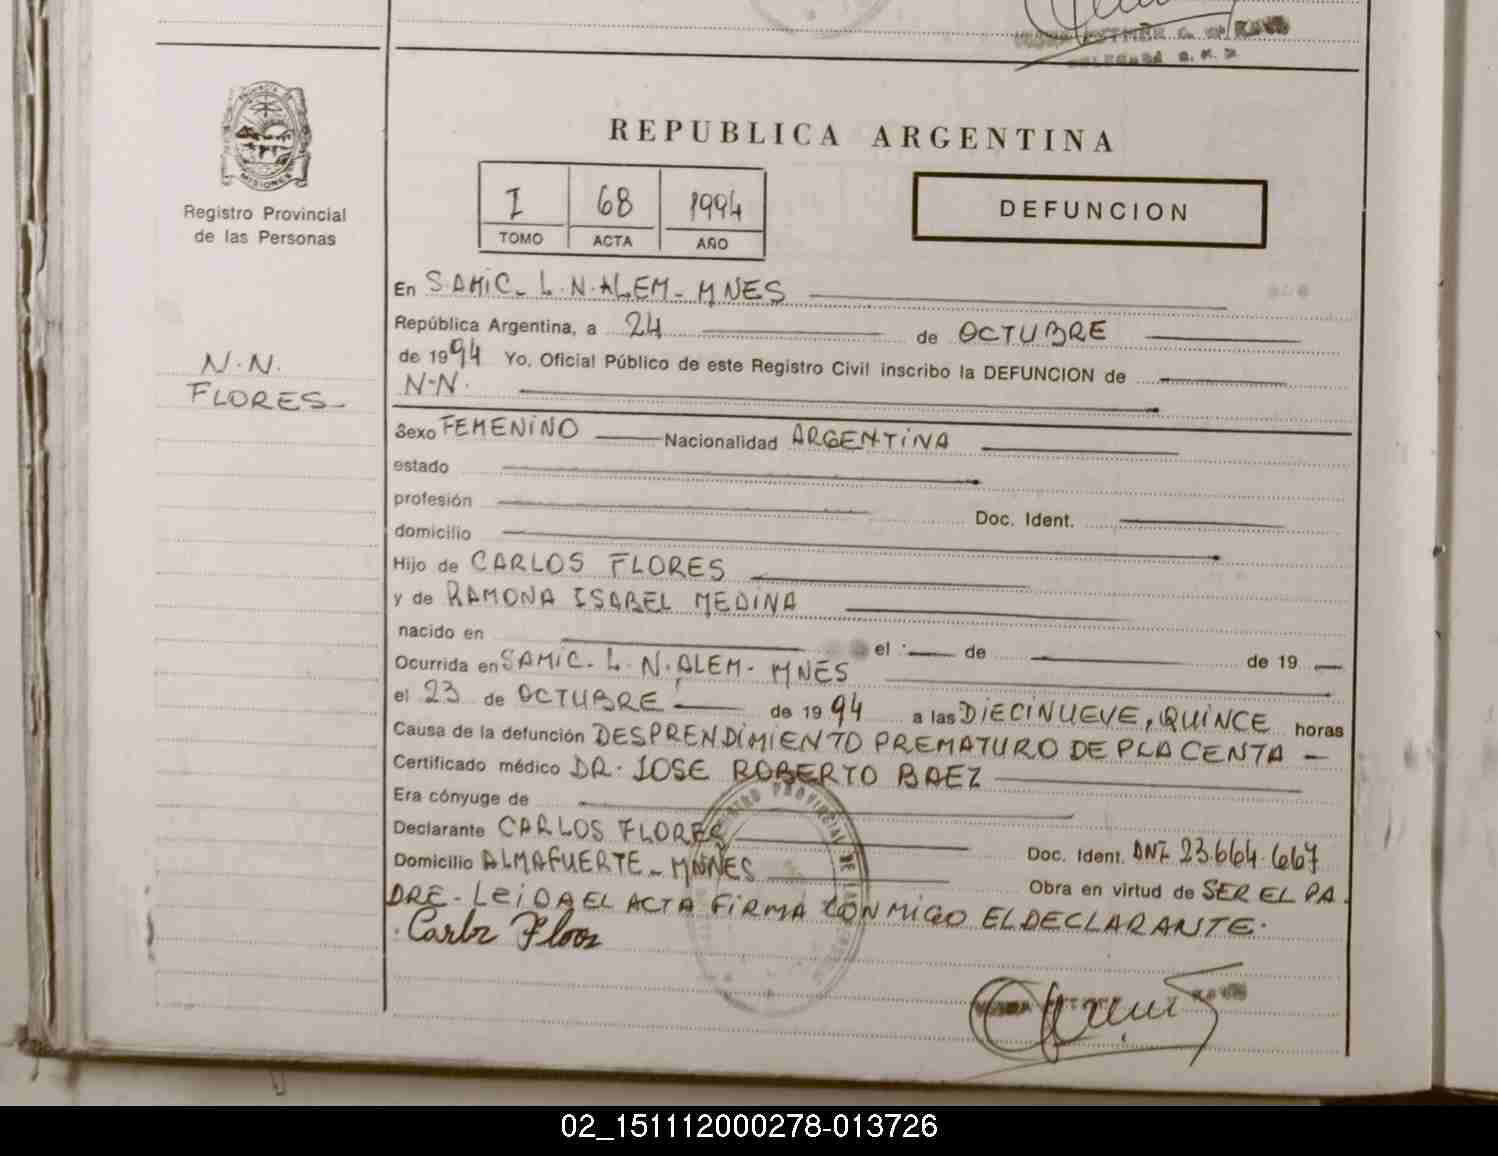 DELEGADA R. P.
REPUBLICA ARGENTINA
MISIONES
Registro Provincial
de las Personas
I 68 1994
TOMO ACTA AÑO
DEFUNCION
En SAMIC. L.N.ALEM - MNES
República Argentina, a 24 de OCTUBRE
de 1994 Yo, Oficial Público de este Registro Civil inscribo la DEFUNCION de
N.N.
FLORES
N-N.
Sexo FEMENINO Nacionalidad ARGENTINA
estado
profesión Doc. Ident.
domicilio
Hijo de CARLOS FLORES
y de RAMONA ISABEL MEDINA
nacido en el de de 19
Ocurrida en SAMIC. L. N. ALEM - MNES
el 23 de OCTUBRE de 1994 a las DIECINUEVE, QUINCE horas
Causa de la defunción DESPRENDIMIENTO PREMATURO DE PLACENTA -
Certificado médico DR. JOSE ROBERTO BAEZ
Era cónyuge de
Declarante CARLOS FLORES Doc. Ident. DNI. 23.664.667
Domicilio ALMAFUERTE - MNNES Obra en virtud de SER EL PA
DRE - LEIDA EL ACTA FIRMA CONMIGO EL DECLARANTE.
Carlos Flores
02_151112000278-013726